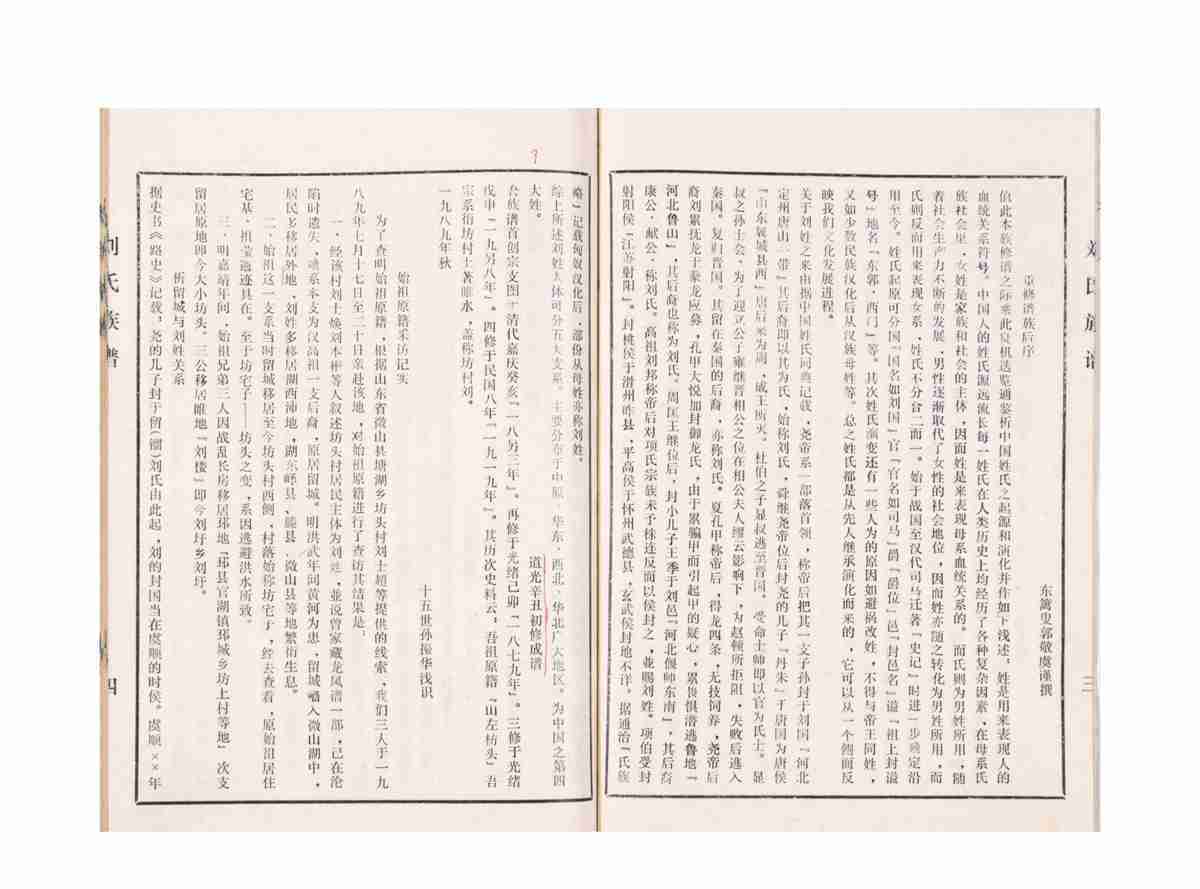 刘氏族谱
三
重修谱族后序
东篱叟郭敬虞谨撰
值此本族修谱之际乘此良机选览通鉴析中国姓氏之起源和演化并作如下浅述。姓是用来表现人的
血统关系符号。中国人的姓氏源远流长每一姓氏在人类历史上均经历了各种复杂因素、在母系氏
族社会里、女姓是家族和社会的主体，因而姓是来表现母系血统关系的。而氏则为男姓所用，随
着社会生产力不断的发展、男性逐渐取代了女性的社会地位，因而姓亦随之转化为男姓所用，而
氏则反而用来表现女系、姓氏不分合二而一。始于战国至汉代司马迁著『史记』时进一步确定沿
用至今。姓氏起源可分国『国名如刘国』官『官名如司马』爵『爵位』邑『封邑名』谥『祖上封谥
号』地名『东郭・西门』等。其次姓氏演变还有一些人为的原因如避祸改姓，不得与帝王同姓，
又如少数民族汉化后从汉族母姓等。总之姓氏都是从先人继承演化而来的，它可以从一个侧面反
映我们文化发展进程。
关于刘姓之来由据中国姓氏词典记载，尧帝系一部落首领，称帝后把其一支子孙封于刘国『河北
定州唐山，带』其后裔即以其为氏，始称刘氏，舜继尧帝位后封尧的儿子『丹朱』于唐国为唐侯
『山东属城县西』唐后来为周，成王所灭。杜伯之子显叔逃至晋国。受命士师即以官为氏士。显
叔之孙士会，为了迎立公子雍继晋相公之位在相公夫人缪云影响下，为赵顿所拒阻，失败后逃入
秦国。复归晋国。其留在秦国的后裔，亦称刘氏。夏孔甲称帝后，得龙四条，无技饲养，尧帝后
裔刘累抚龙于豢龙应募，孔甲大悦加封御龙氏，由于累骗甲而引起甲的疑心，累畏惧潜逃鲁地『
河北鲁山』，其后裔也称为刘氏。周匡王继位后，封小儿子王季于刘邑『河北偃师东南』，其后裔
康公・献公・称刘氏。高祖刘邦称帝后对项氏宗族未予株连反而以侯封之，並赐刘姓。项伯受封
射阳侯『江苏射阳』。封桃侯于滑州昨县，平高侯于怀州武德县，玄武侯封地不详。据通治『氏族
略』记载匈奴汉化后，部份从母姓亦称刘姓。
综上所述刘姓人大体可分五大支系。主要分布于中原、华东・西北・华北广大地区。为中国之第四
大姓。
道光辛丑初修成谱
吾族谱首创宗支图于清代嘉庆癸亥『一八另三年』。再修于光绪己卯『一八七九年』。三修于光绪
戊申『一九另八年』。四修于民国八年『一九一九年』。其历次史料云，吾祖原籍『山左枋头』吾
宗系衍坊村土著睢水，盖称坊村刘。
一九八九年秋
始祖原籍采访记实
十五世孙振华浅识
为了查明始祖原籍，根据山东省微山县塘湖乡坊头村刘士超等提供的线索，我们三人于一九
八九年七月十七日至二十日亲赴该地，对始祖原籍进行了查访其结果是：
一・经该村刘士焕刘本彬等人叙述坊头村居民主体为刘姓，並说曾家藏龙风谱一部，已在沦
陷时遗失，嘖系本支为汉高祖一支后裔，原居留城。明洪武年间黄河为患，留城蹯入微山湖中，
居民多移居外地，刘姓多移居湖西沛地，湖东峄县、滕县・微山县等地繁衍生息。
二・始祖这一支系当时留城移居至今坊头村西侧，村落始称坊宅子，经去查看，原始祖居住
宅基・祖茔遗迹具在。至于坊宅子——坊头之变，系因逃避洪水所致。
三・明嘉靖年间，始祖兄弟三人因战乱长房移居邳地『邳县官湖镇邳城乡坊上村等地』次支
留居原地即今大小坊头。三公移居睢地『刘楼』即今刘圩乡刘圩。
析留城与刘姓关系
据史书《路史》记载，尧的儿子封于留（镏）刘氏由此起，刘的封国当在虞顺的时侯。虞顺××年
刘氏族谱
四